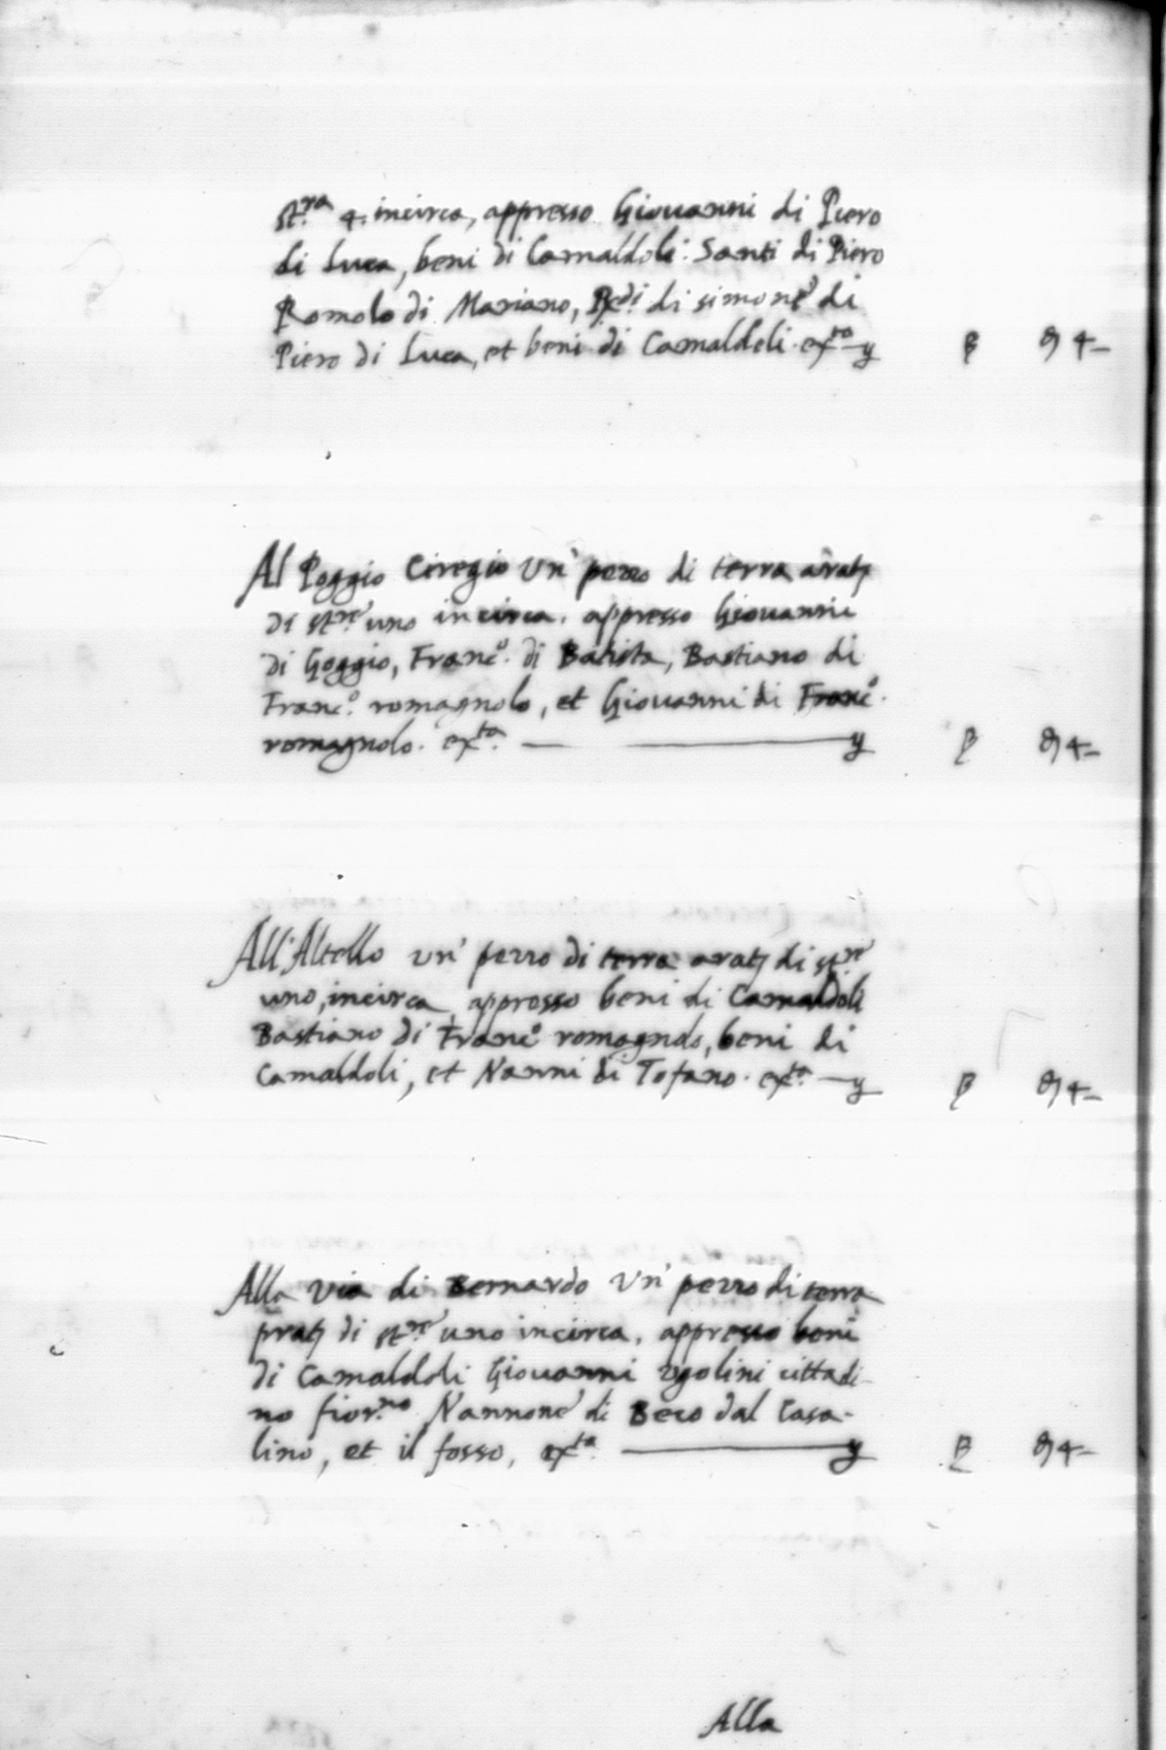 st.ra 4. incirca, appresso Giouanni di Piero
di Luca, beni di Camaldoli: Santi di Piero
Romolo di Mariano, Redi di simone di
Piero di Luca, et beni di Camaldoli. exta
Al Poggio Ciregio un' pezzo di terra arat
di st.re uno incirca, appresso Giouanni
di Goggio, Franc.o di Batista, Bastiano di
Franc.o romagnolo, et Giouanni di Franc.o
romagnolo. exta.
All'Altello un' pezzo di terra arat di st.re
uno, incirca appresso beni di Camaldoli
Bastiano di Franc.o romagnolo, beni di
Camaldoli, et Nanni di Tofano. exta.
Alla via di Bernardo un' pezzo di terra
prat di st.re uno incirca, appresso beni
di Camaldoli Giouanni ugolini cittadi-
no fior.no Nannone di Beco dal Casa-
lino, et il fosso, exta.
Alla